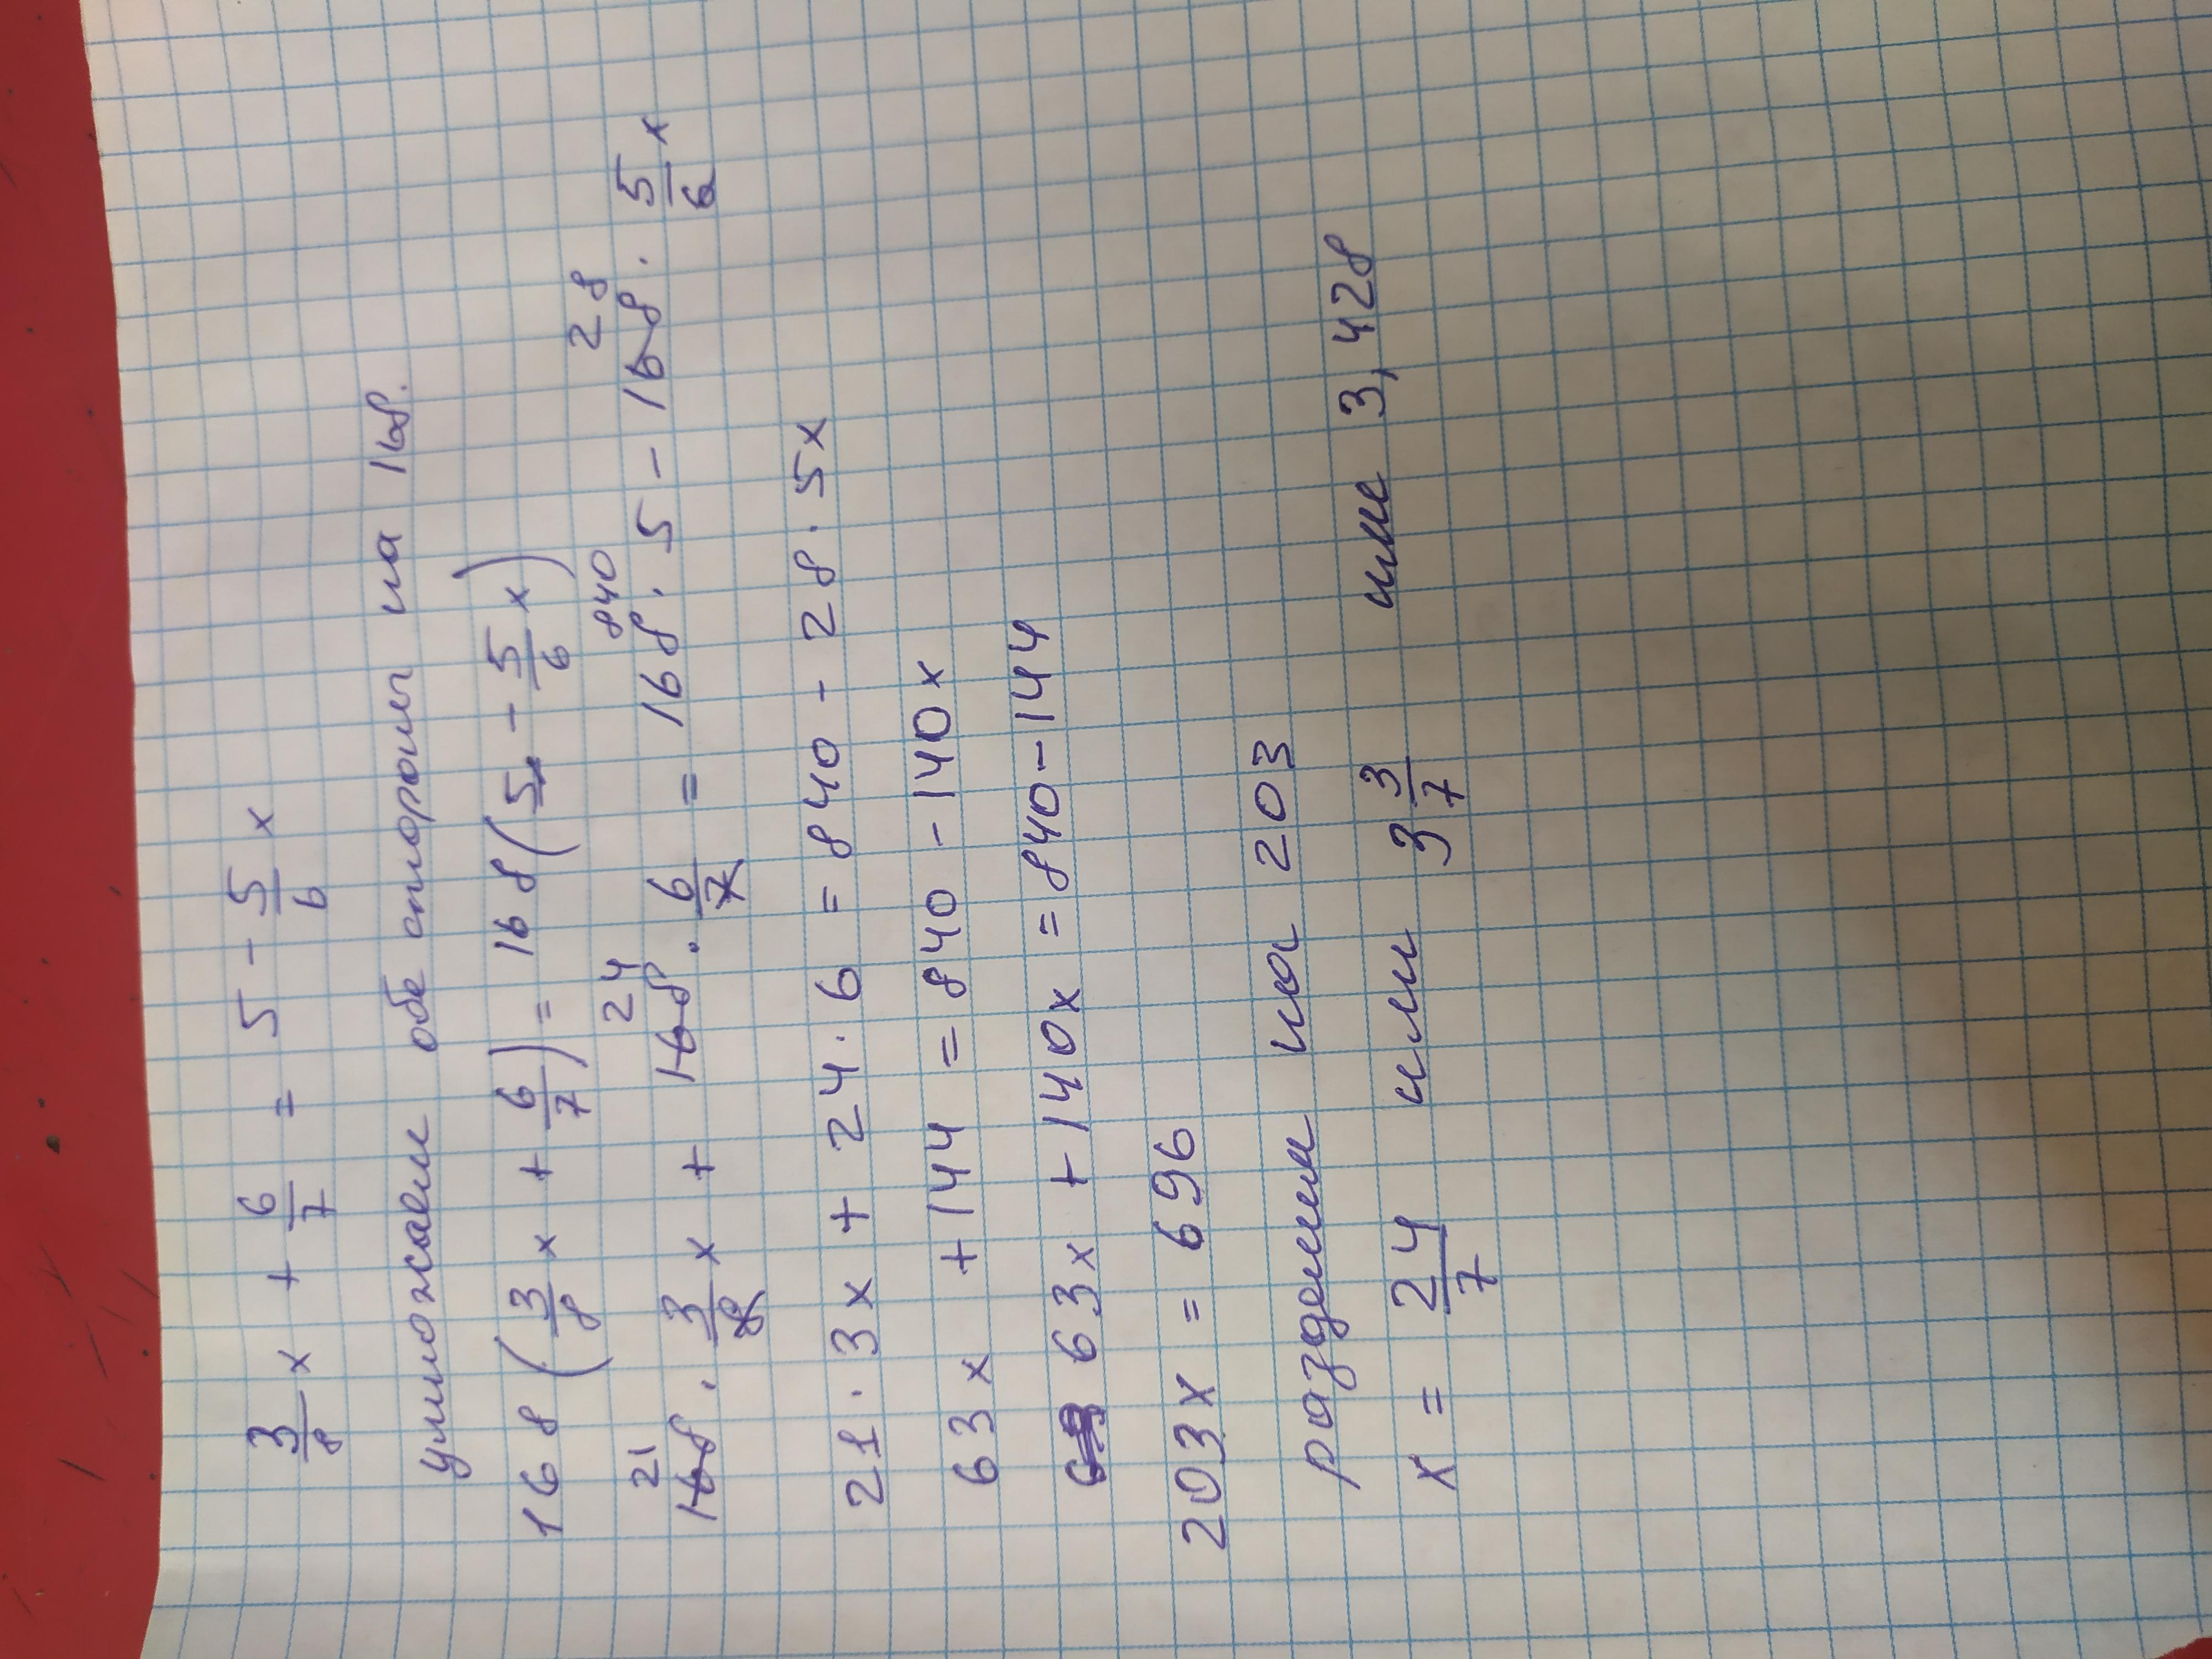 3/8 x + 6/7 = 5 - 5/6 x
умножаем обе стороны на 168.
168 (3/8 x + 6/7) = 168 (5 - 5/6 x)
21 24 840 28
168 · 3/8 x + 168 · 6/7 = 168 · 5 - 168 · 5/6 x
21 · 3x + 24 · 6 = 840 - 28 · 5x
63x + 144 = 840 - 140x
63x + 140x = 840 - 144
203x = 696
разделим на 203
x = 24/7 или 3 3/7 или 3,428